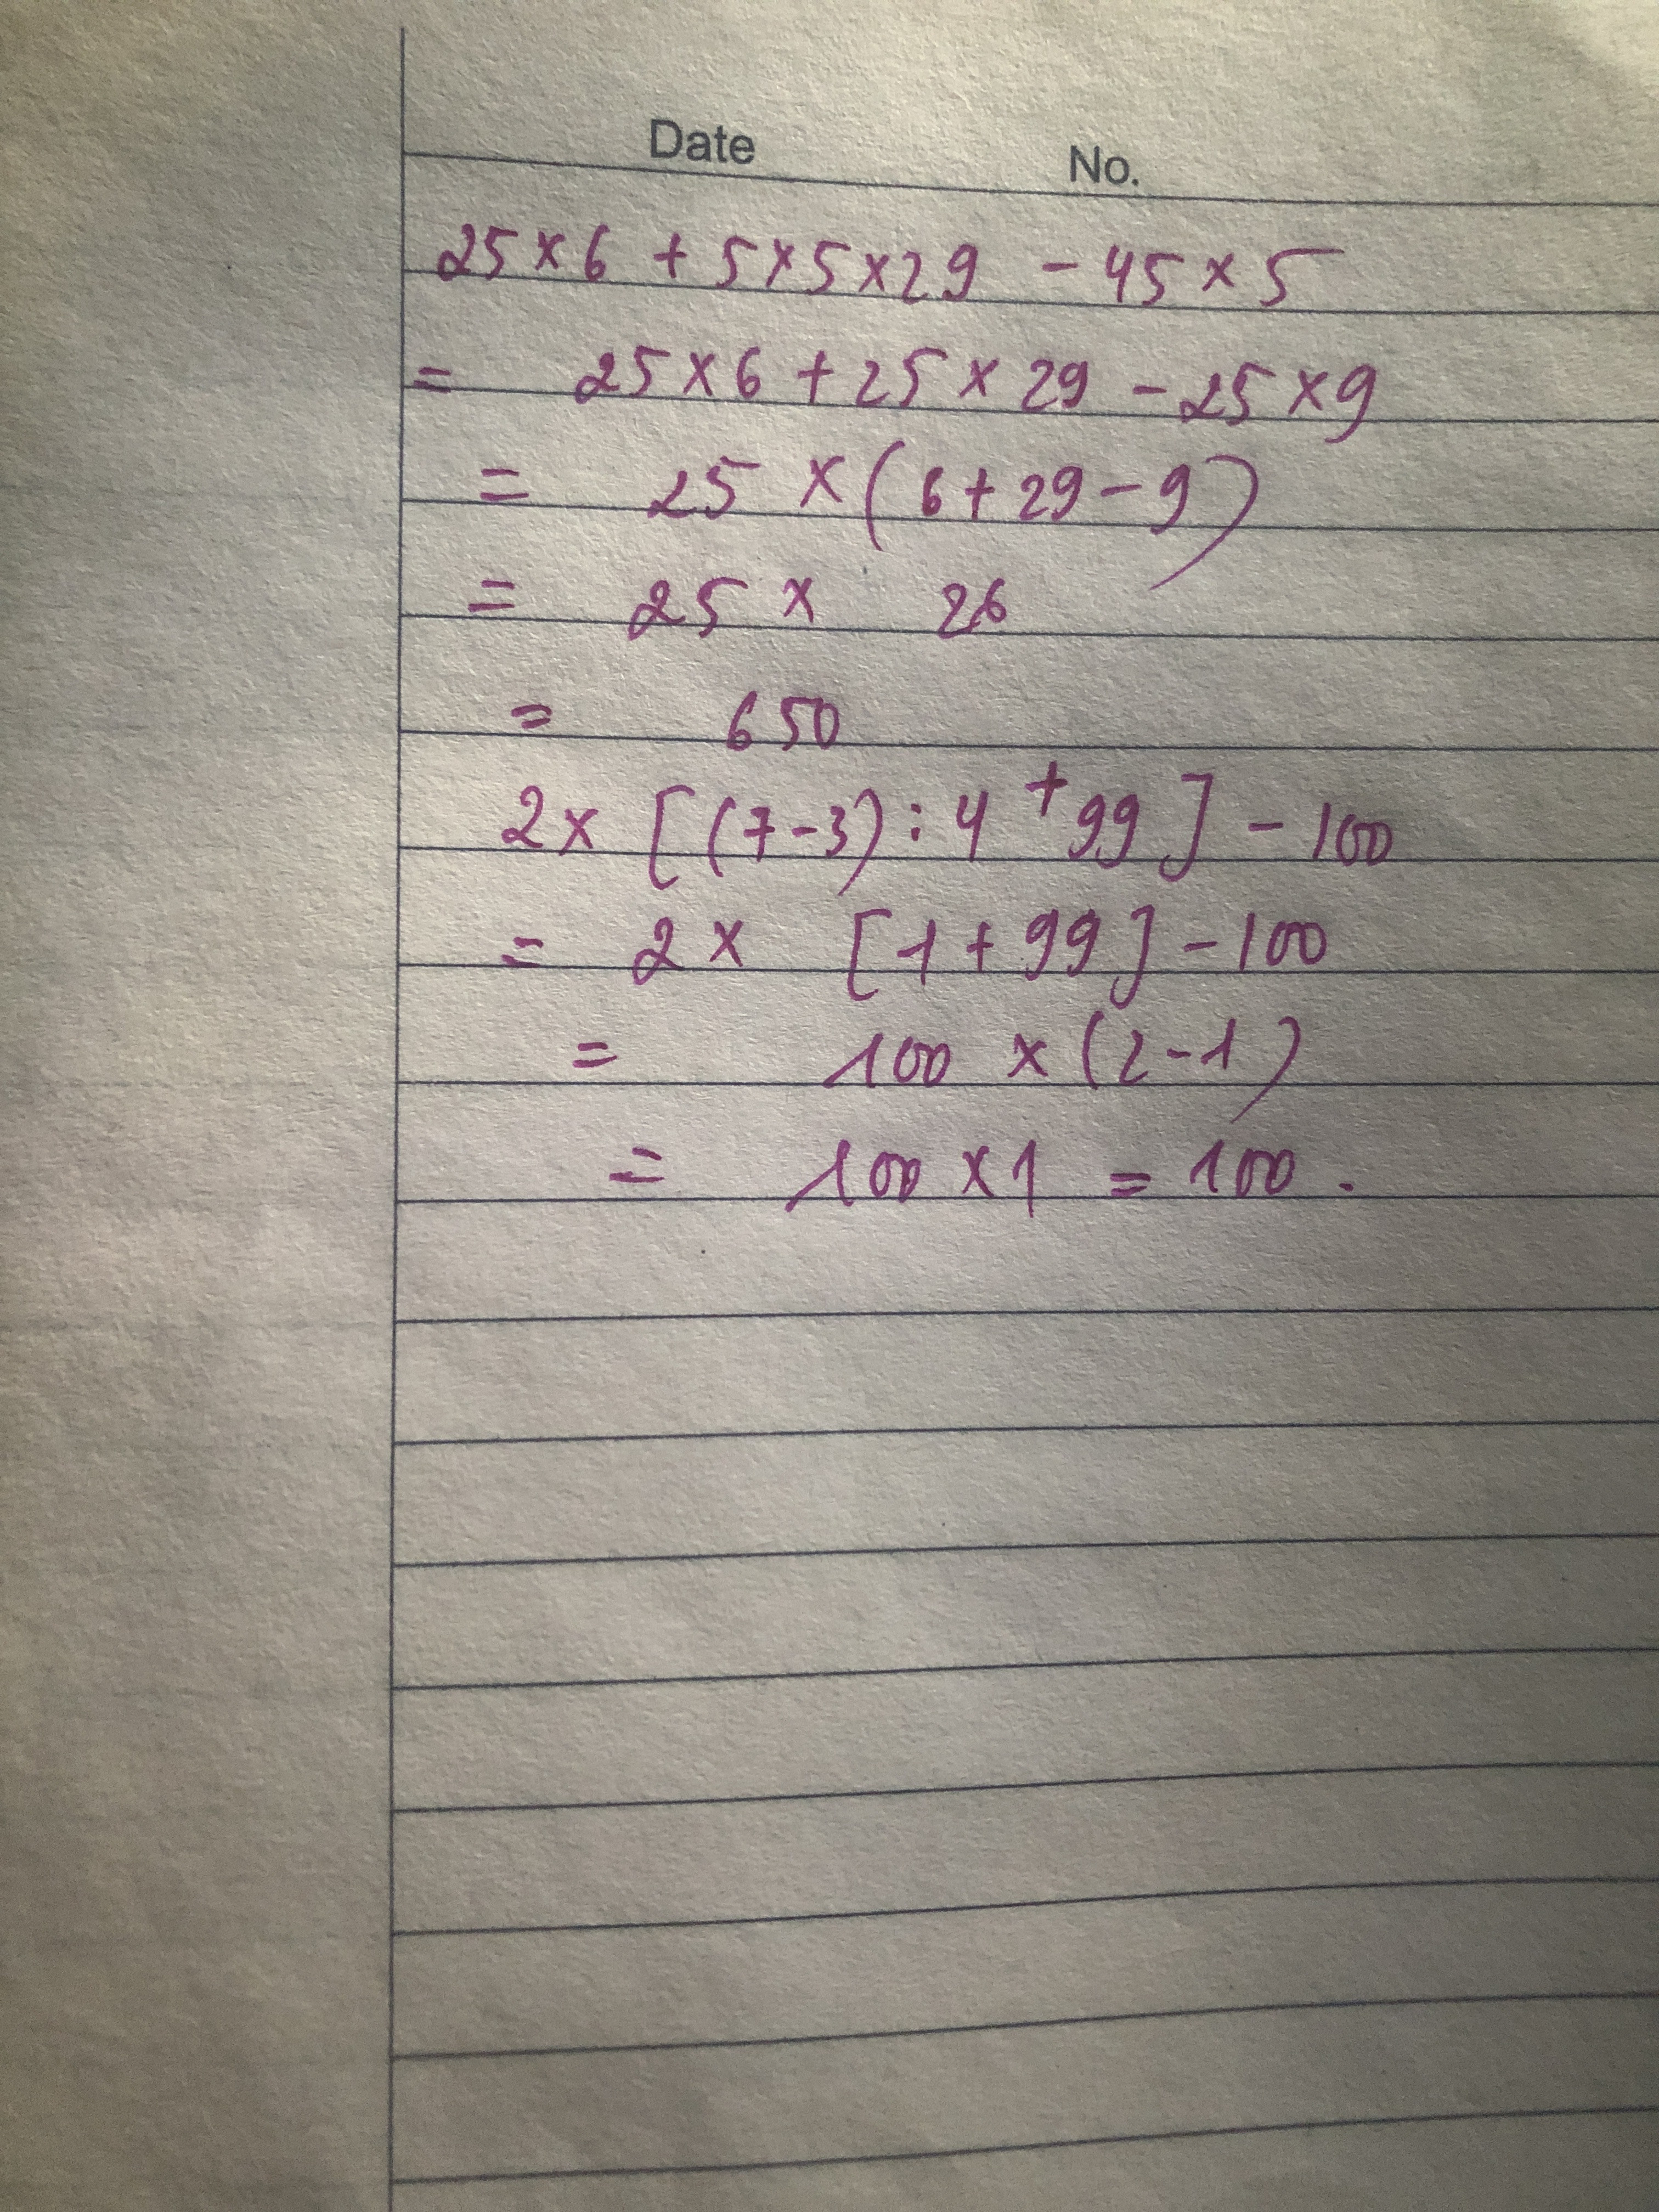 Date No.
25 × 6 + 5 × 5 × 29 - 45 × 5
= 25 × 6 + 25 × 29 - 25 × 9
= 25 × (6 + 29 - 9)
= 25 × 26
= 650
2 × [(7 - 3) : 4 + 99] - 100
= 2 × [1 + 99] - 100
= 100 × (2 - 1)
= 100 × 1 = 100.